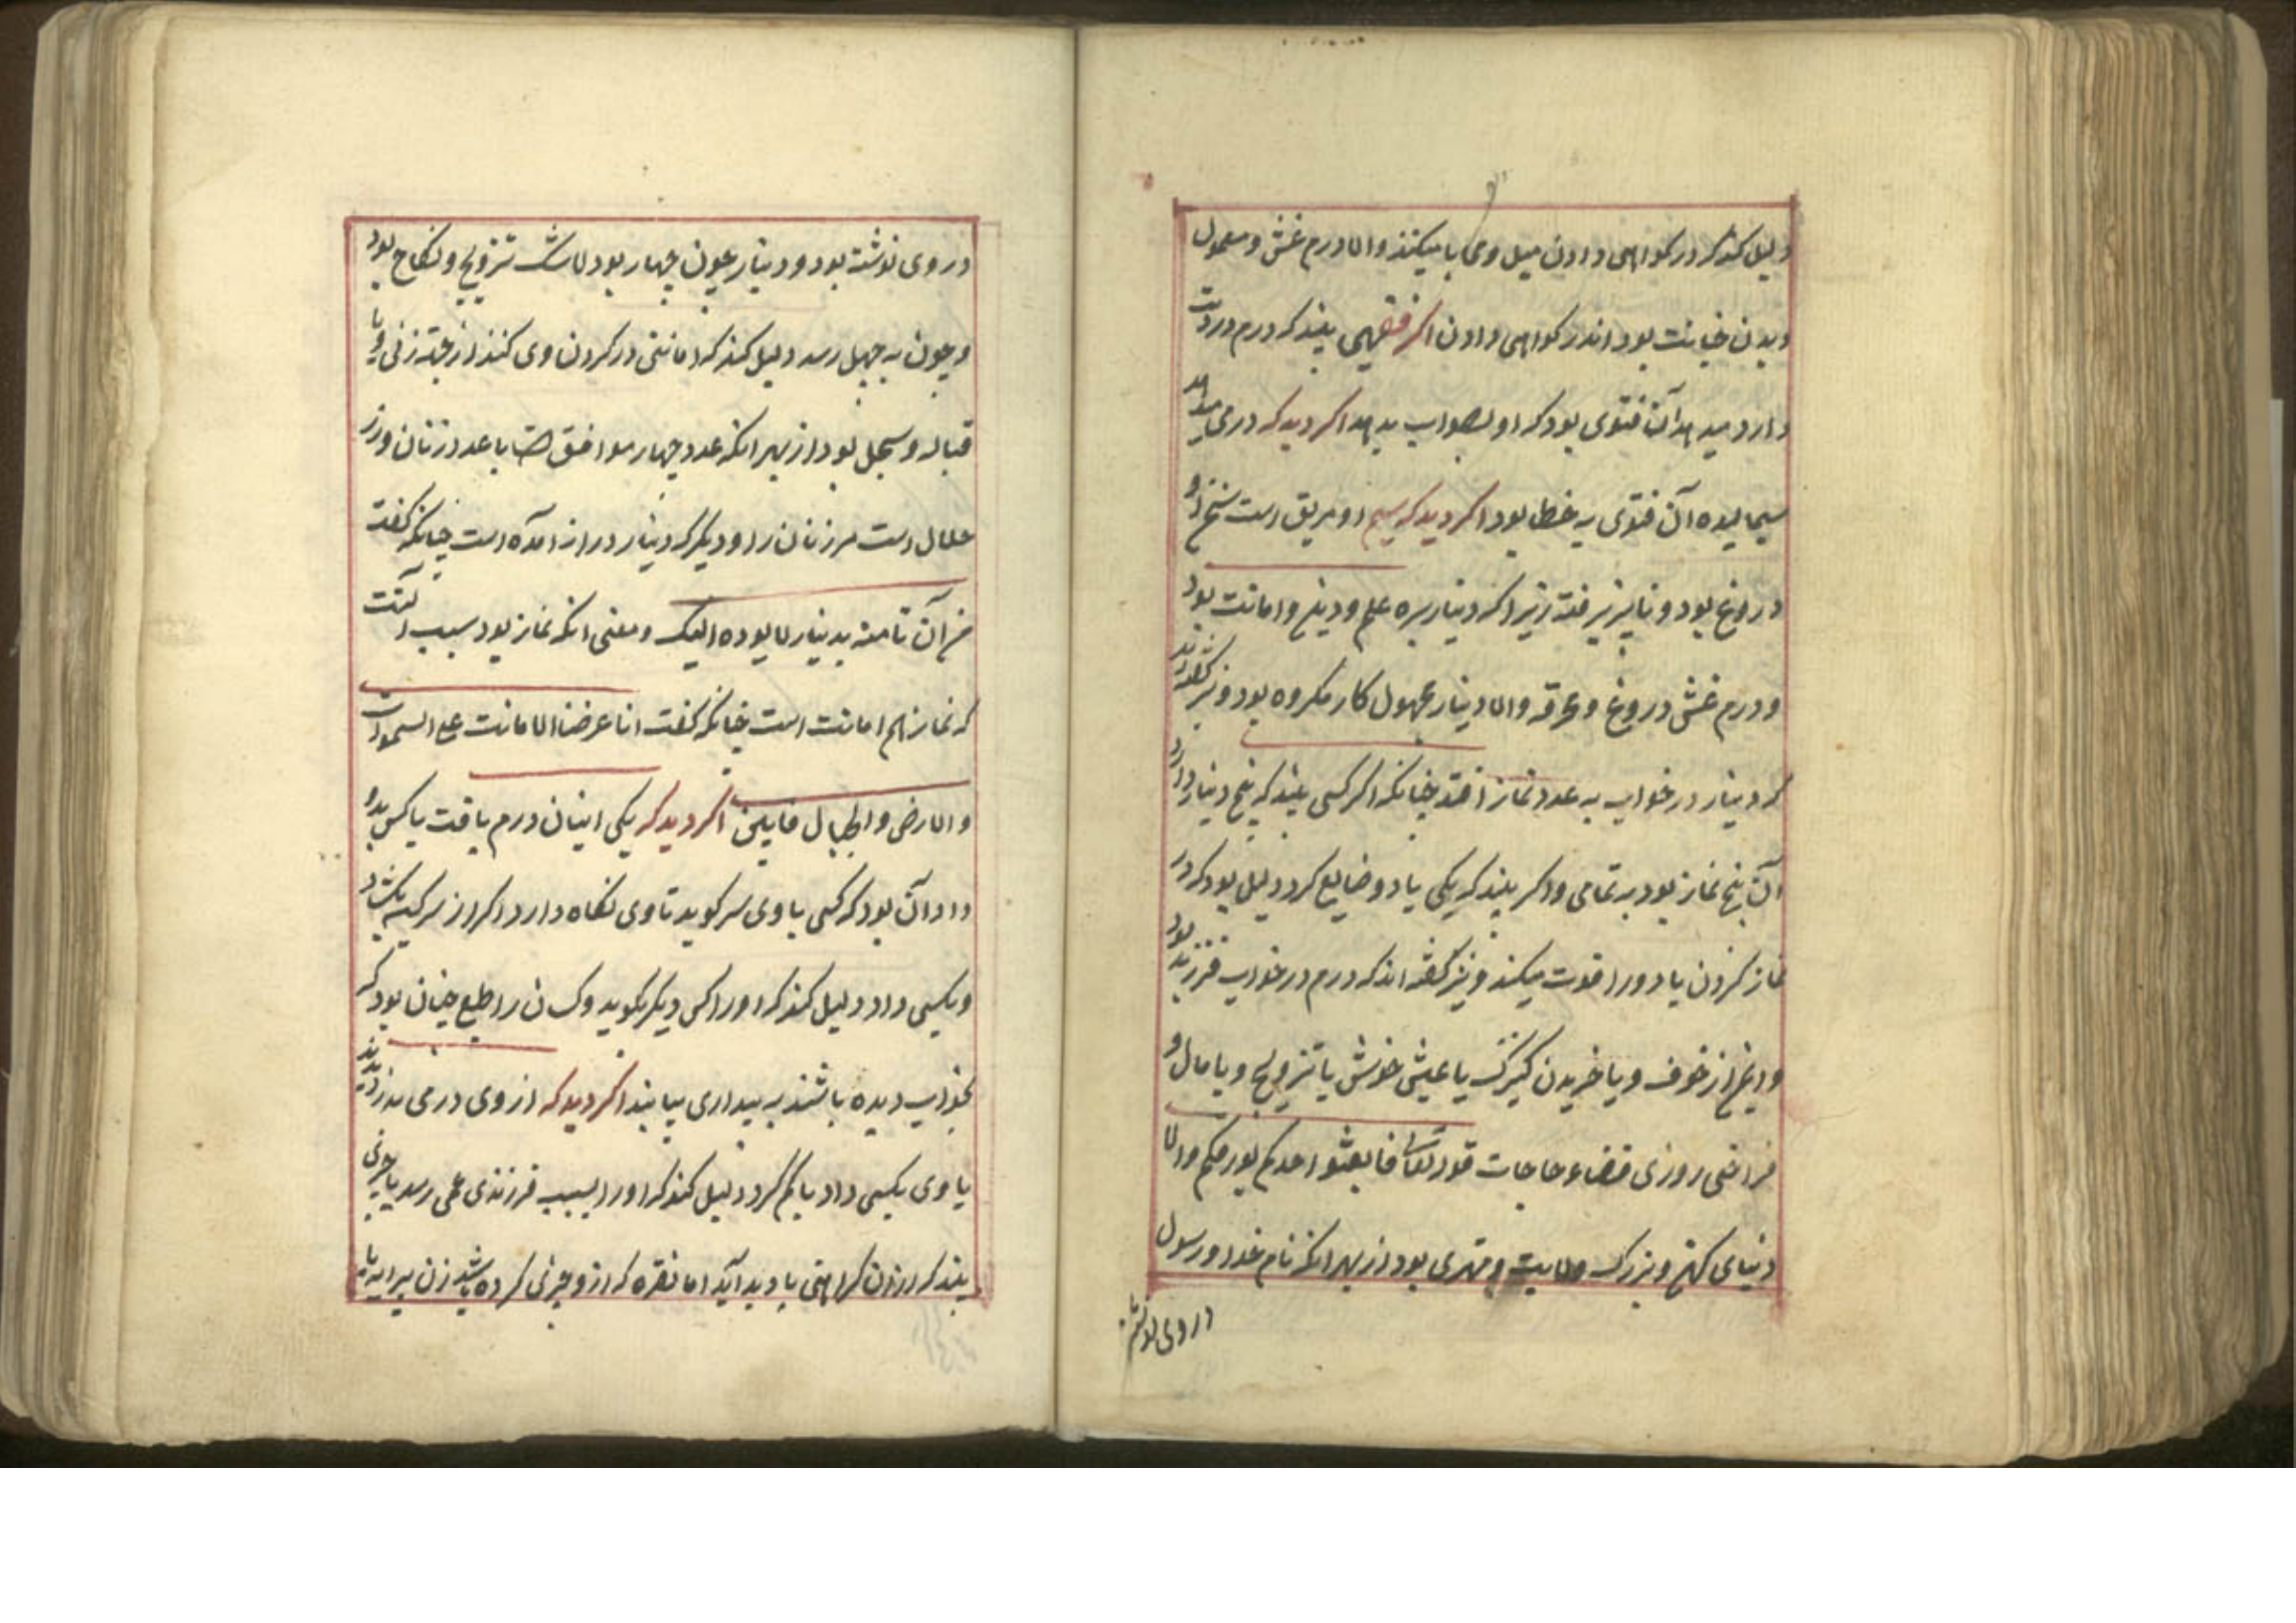 دلیل کند که در کواهی دادن میل و محابا میکند واما درم غش و معمول
دیدن خیانت بود اندر کواهی دادن اکر فقیهی بیند که درم درست
دارد میدهد آن فتوی بود که او بصواب بدهد اکر دید که درمی میداد
سیم آلوده آن فتوی به خطا بود اکر دید که سیم او مزیق است سخن او
دروغ بود و ناپزیرفته زیرا که دینار سره علم و دین و امانت بود
و درم غش دروغ و مخرقه واما دینار مجهول کار مکروه بود و نیز کفته‌اند
که دینار در خواب به عدد نماز افتد چنانکه اکر کسی بیند که پنج دینار دارد
آن پنج نماز بود به تمامی و اکر بیند که یکی یا دو ضایع کرد دلیل بود که در
نماز کردن یا دو را فوت میکند و نیز کفته اند که درم در خواب فرزند بود
و ایمن از خوف و یا خریدن کنیزک یا عیش خوش یا تزویج و یا مال و
فراخی روزی قضاء حاجات قوله تعالی فابعثوا احدکم بورقکم والا
دنیای کهتر و بزرک ولایت و مهتری بود از بهر انکه نام خدا و رسول
در وی نوشته
در وی نوشته بود و دینار چون چهار بود تزویج و نکاح بود
و چون به چهل رسد دلیل کند که امانتی در کردن وی کنند از جهة زنی و یا
قباله و سجل بود از بهر انکه عدد چهار موافق است با عدد زنان و زر
حلال است مرزنان را و دیکر که دینار در از آمده است چنانکه کفت
من آن تامنه بدینار لا یوده الیک و معنی انکه نماز بود سبب آنست
که نماز هم امانت است چنانکه کفت انا عرضنا الامانت علی السموات
والارض والجبال فابین اکر دید که یکی انبان درم یافت یا کس بدو
داد آن بود که کسی با وی سر کوید تا وی نکاه دارد اکر از سر کیسه بکشاد
و بکسی داد دلیل کند که او را کس دیکر بکوید و کسان را طبع چنان بود که
بخواب دیده باشند به بیداری بیابند اکر دید که از وی درمی بدزدیدند
یا وی بکسی داد یا کم کرد دلیل کند که او را بسبب فرزندی غمی رسد یا چیزی
بیند که از آن کراهتی پدید آید اما نقره که ازو چیزی کرده باشند زن پیرایه